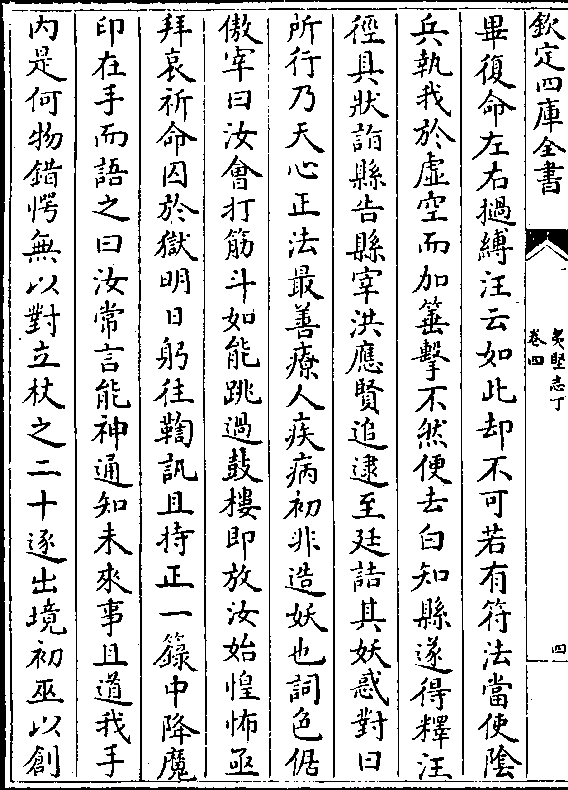 欽定四庫全書
夷堅志丁
卷四
四
畢復命左右撾縛汪云如此却不可若有符法當使陰
兵執我於虛空而加箠擊不然便去白知縣遂得釋汪
徑具狀詣縣告縣宰洪應賢追逮至廷詰其妖惑對曰
所行乃天心正法最善療人疾病初非造妖也詞色倨
傲宰曰汝會打筋斗如能跳過鼓樓即放汝始惶怖亟
拜哀祈命囚於獄明日躬往鞫訊且持正一籙中降魔
印在手而語之曰汝常言能神通知未來事且道我手
内是何物錯愕無以對立杖之二十逐出境初巫以創